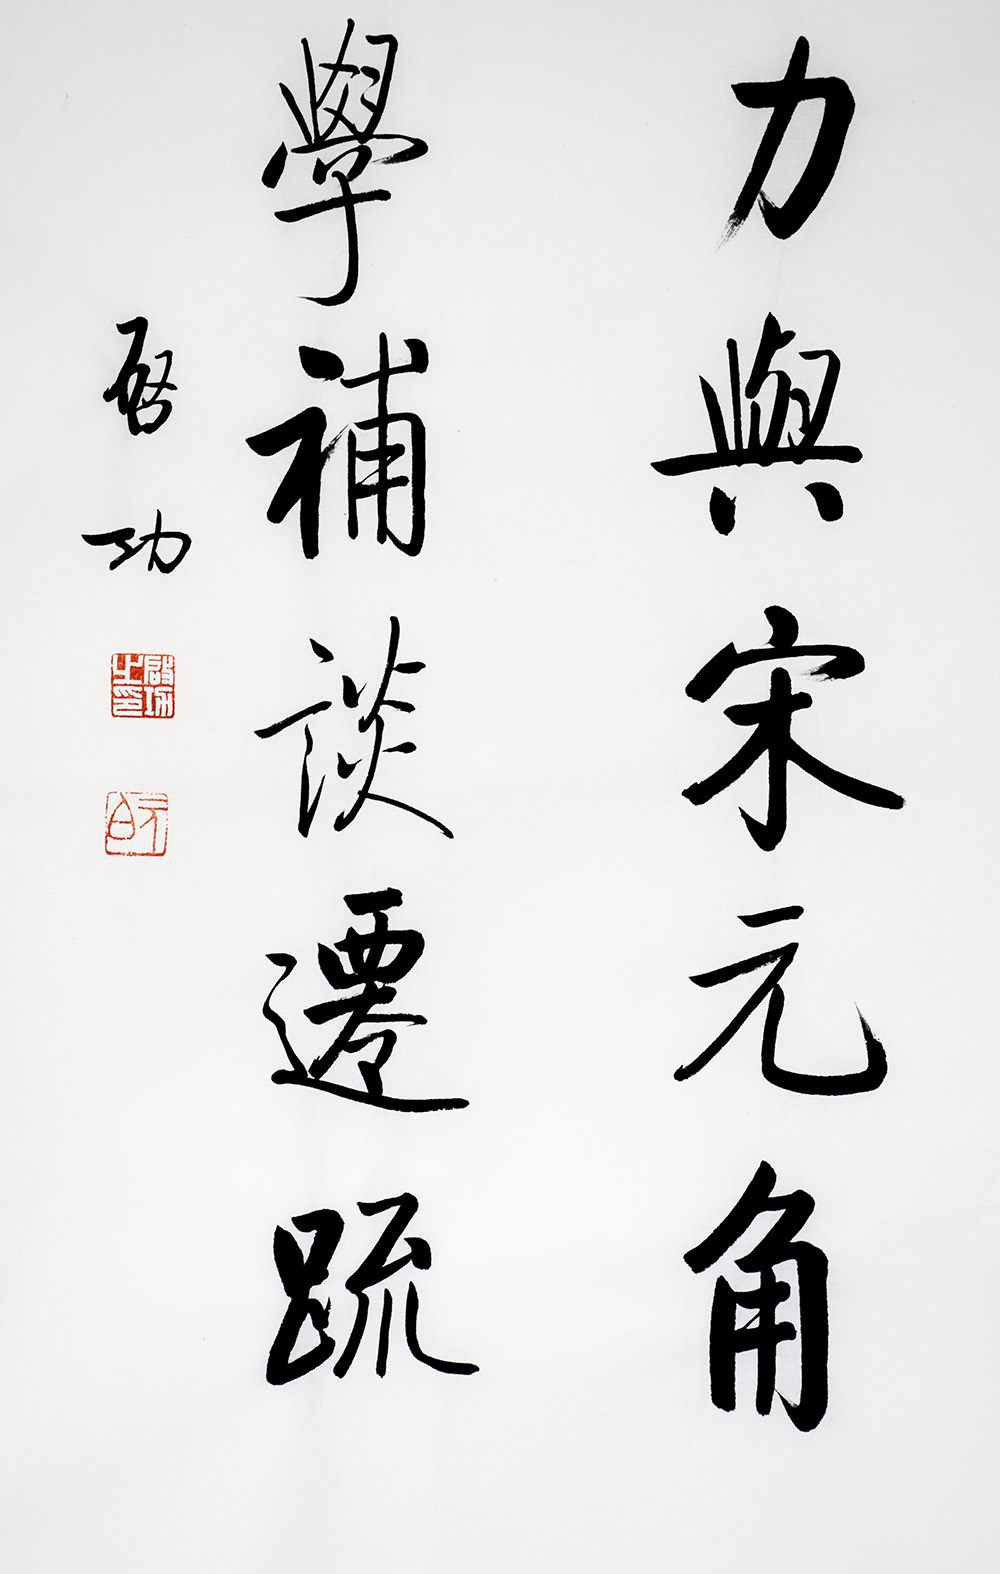 力與宋元角
學補談遷疏
啓功
啟功之印
元白